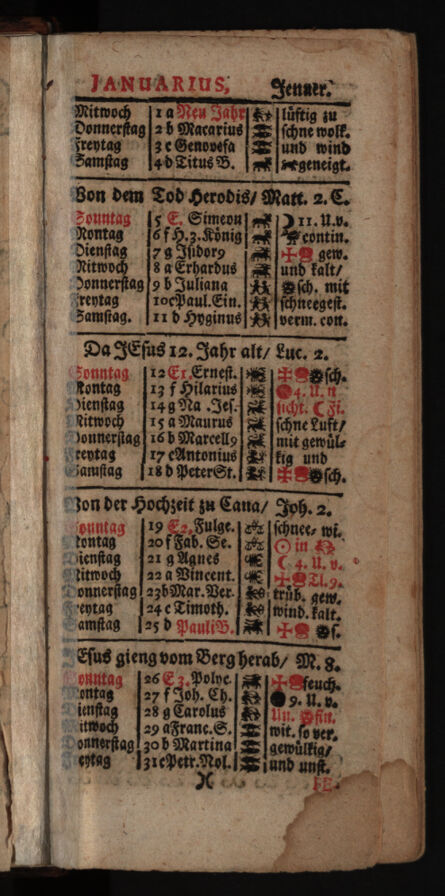 JANUARIUS, Jenner.
Mitwoch 1 a Neu Jahr lüftig zu
Donnerstag 2 b Macarius schne wolk.
Freytag 3 c Genovefa und wind
Samstag 4 d Titus B. geneigt.
Von dem Tod Herodis/ Matt. 2. C.
Sonntag 5 E. Simeon 11. U. v.
Montag 6 f H. 3. König contin.
Dienstag 7 g Isidor9 gew.
Mitwoch 8 a Erhardus und kalt/
Donnerstag 9 b Juliana sch. mit
Freytag 10 c Paul. Ein. schneegest.
Samstag. 11 d Hyginus verm. con.
Da JEsus 12. Jahr alt/ Luc. 2.
Sonntag 12 E1. Ernest. sch.
Montag 13 f Hilarius 4. U. n
Dienstag 14 g Na. Jes. licht.
Mitwoch 15 a Maurus schne Luft/
Donnerstag 16 b Marcell9 mit gewül-
Freytag 17 c Antonius kig und
Samstag 18 d Peter St. sch.
Von der Hochzeit zu Cana/ Joh. 2.
Sonntag 19 E2. Fulge. schnee, wi.
Montag 20 f Fab. Se. in
Dienstag 21 g Agnes 4. U. v.
Mitwoch 22 a Vincent. Tl. 9.
Donnerstag 23 b Mar. Ver. trüb. gew.
Freytag 24 c Timoth. wind. kalt.
Samstag 25 d Pauli B.
JEsus gieng vom Berg herab/ M. 8.
Sonntag 26 E3. Polyc. feuch.
Montag 27 f Joh. Ch. 9. U. v.
Dienstag 28 g Carolus Un. fin.
Mitwoch 29 a Franc. S. wit. so ver.
Donnerstag 30 b Martina gewülkig/
Freytag 31 c Petr. Nol. und unst.
FE-